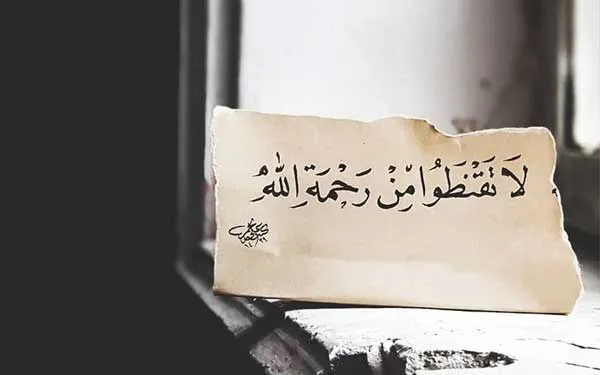 لَا تَقْنَطُوا مِّنْ رَحْمَةِ اللّٰهِ